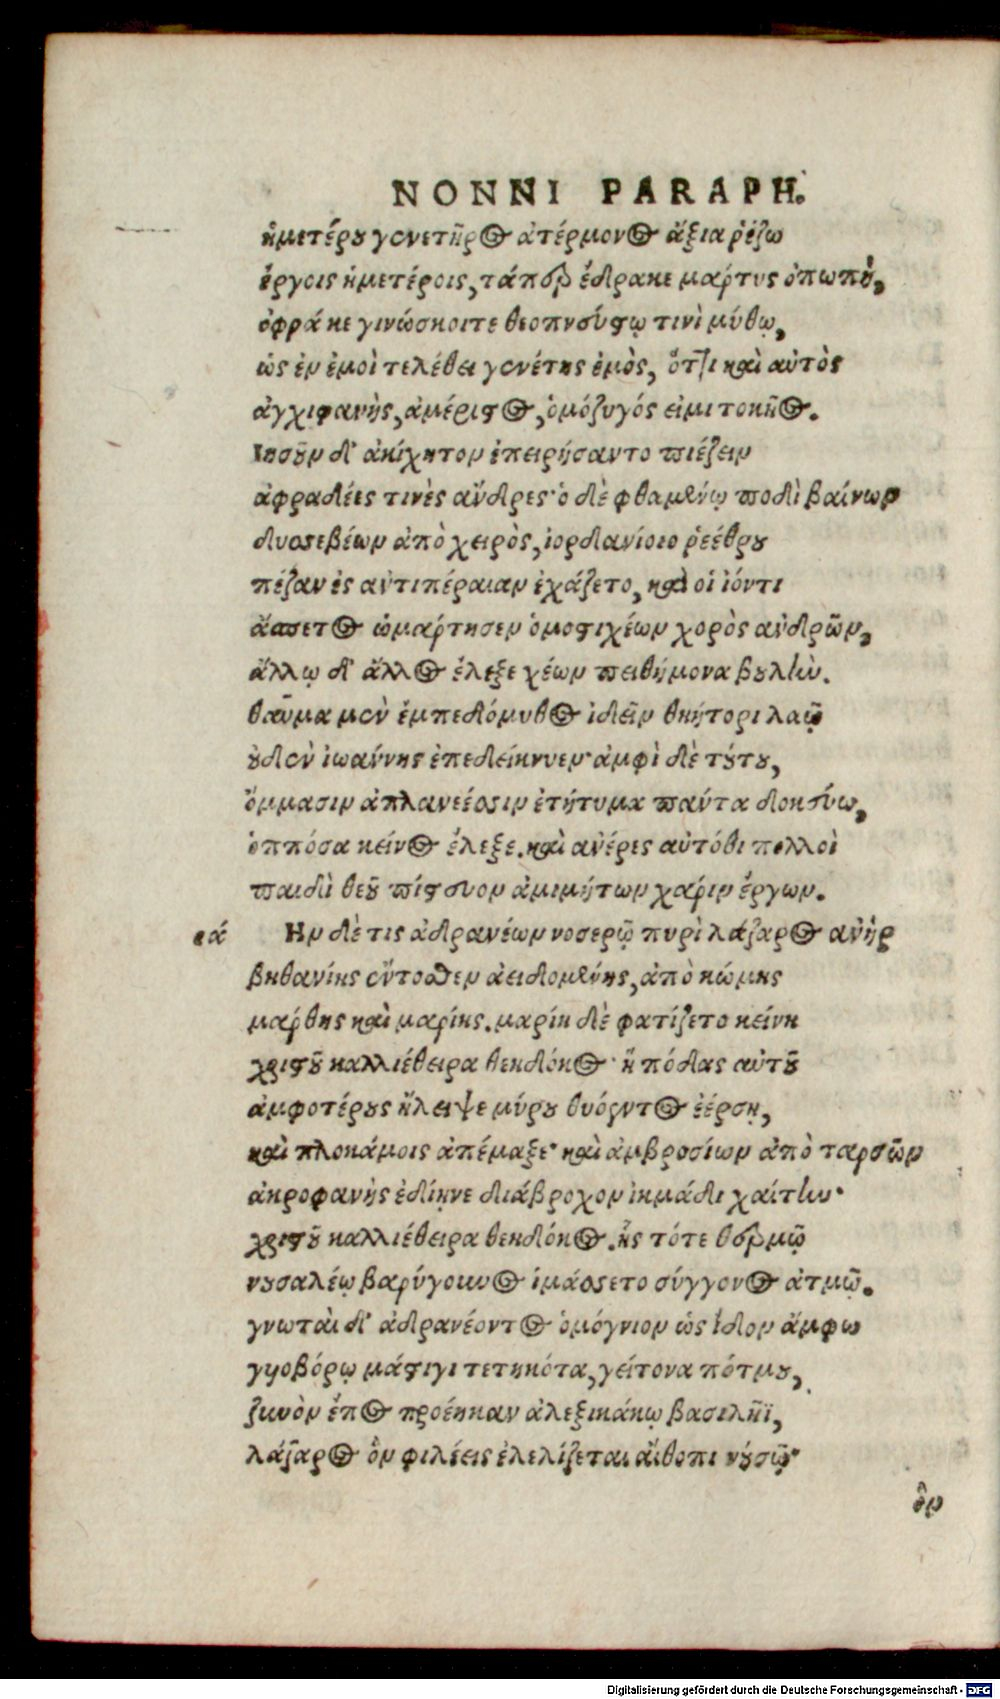 NONNI PARAPH.
ἡμετέρου γενετῆρος ἀτέρμονος ἄξια ῥέζω
ἔργοις ἡμετέροις, τάπερ ἔδρακε μαρτυς ὀπωπὴ,
ὄφρά κε γινώσκοιτε θεοπνεύστῳ τινὶ μύθῳ,
ὡς ἐν ἐμοὶ τελέθει γενέτης ἐμὸς, ὅττι καὶ αὐτὸς
ἀγχιφανὴς, ἀμέριστος, ὁμόζυγός εἰμι τοκῆος.
Ιησοῦν δ' ἀκίχητον ἐπειρήσαντο πιέζειν
ἀφραδέες τινὲς ἄνδρες· ὁ δὲ φθαμένῳ ποδὶ βαίνων
δυσσεβέων ἀπὸ χειρὸς, ἰορδανίοιο ῥεέθρου
πέζαν ἐς ἀντιπέραιαν ἐχάζετο, καὶ οἱ ἰόντι
ἄασετος ὡμάρτησεν ὁμοστιχέων χορὸς ἀνδρῶν,
ἄλλῳ δ' ἄλλος ἔλεξε χέων πειθήμονα βουλὴν.
θαῦμα μὲν ἐμπεδόμυθος ἰδεῖν θηήτορι λαῷ
οὐδὲν ἰωάννης ἐπεδείκνυεν· ἀμφὶ δὲ τούτου,
ὄμμασιν ἀπλανέεσσιν ἐτήτυμα πάντα δοκεύω,
ὁππόσα κεῖνος ἔλεξε. καὶ ἀνέρες αὐτόθι πολλοὶ
παιδὶ θεοῦ πίστευον ἀμιμήτων χάριν ἔργων.
ια Ην δέ τις ἀδρανέων νοσερῷ πυρὶ λάζαρος ἀνὴρ
βηθανίης ἔντοσθεν ἀειδομένης, ἀπὸ κώμης
μάρθης καὶ μαρίης. μαρίη δὲ φατίζετο κείνη
χριστοῦ καλλιέθειρα θεηδόκος· ἣ πόδας αὐτοῦ
ἀμφοτέρους ἤλειψε μύρου θυόεντος ἐέρσῃ,
καὶ πλοκάμοις ἀπέμαξε· καὶ ἀμβροσίων ἀπὸ ταρσῶν
ἀκροφανὴς ἐδίηνε διάβροχον ἰκμάδι χαίτην·
χριστοῦ καλλιέθειρα θεηδόκος. ἧς τότε θερμῷ
νουσαλέῳ βαρύγουνος ἱμάσσετο σύγγονος ἀτμῷ.
γνωταὶ δ' ἀδρανέοντος ὁμόγνιον ὡς ἴδον ἄμφω
γυιοβόρῳ μάστιγι τετηκότα, γείτονα πότμου,
ξυνὸν ἔπος προέηκαν ἀλεξικάκῳ βασιλῆϊ,
λάζαρος ὃν φιλέεις ἐλελίζεται αἴθοπι νούσῳ·
ὃν
Digitalisierung gefördert durch die Deutsche Forschungsgemeinschaft - DFG